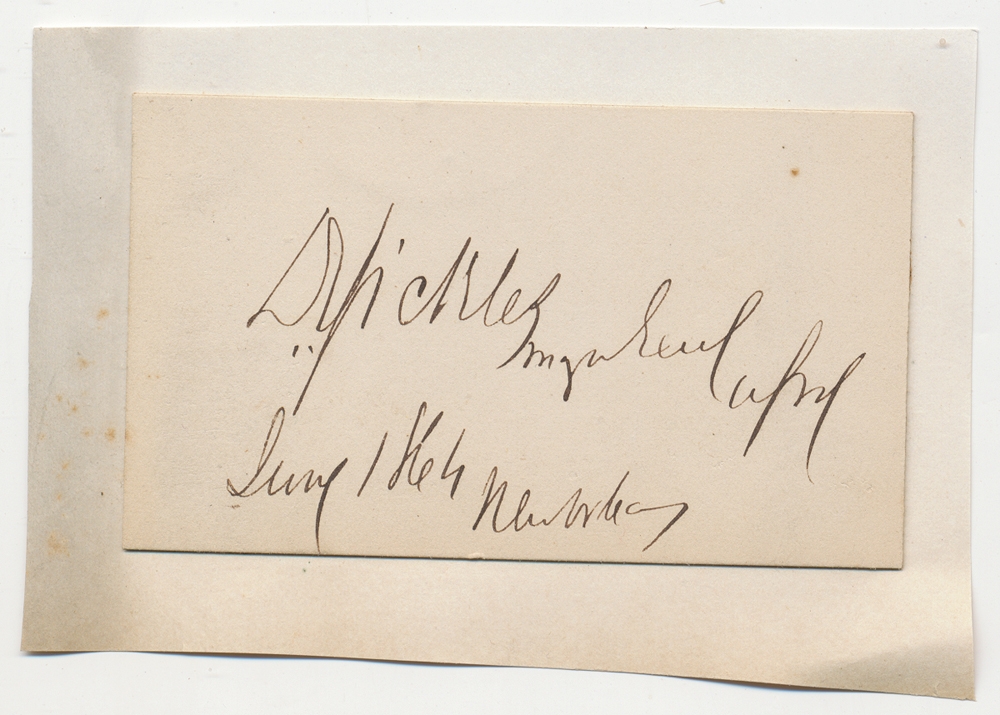 D Sickles
Maj Genl
June 1864 New Orleans